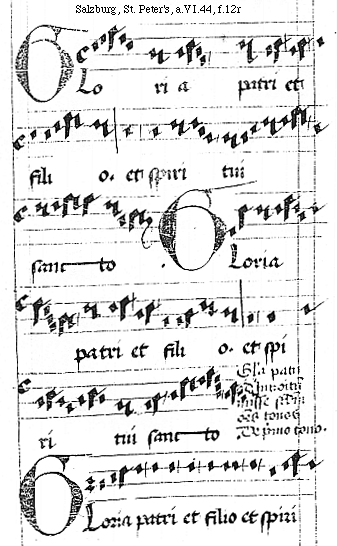 Salzburg, St. Peter's, a.VI.44, f.12r
Glo ri a patri et
fili o. et spiri tui
sanc to . Gloria
patri et fili o. et spi
Gl'a patri
ri tui sanc to
De p'mo tono.
Gloria patri et filio et spiri